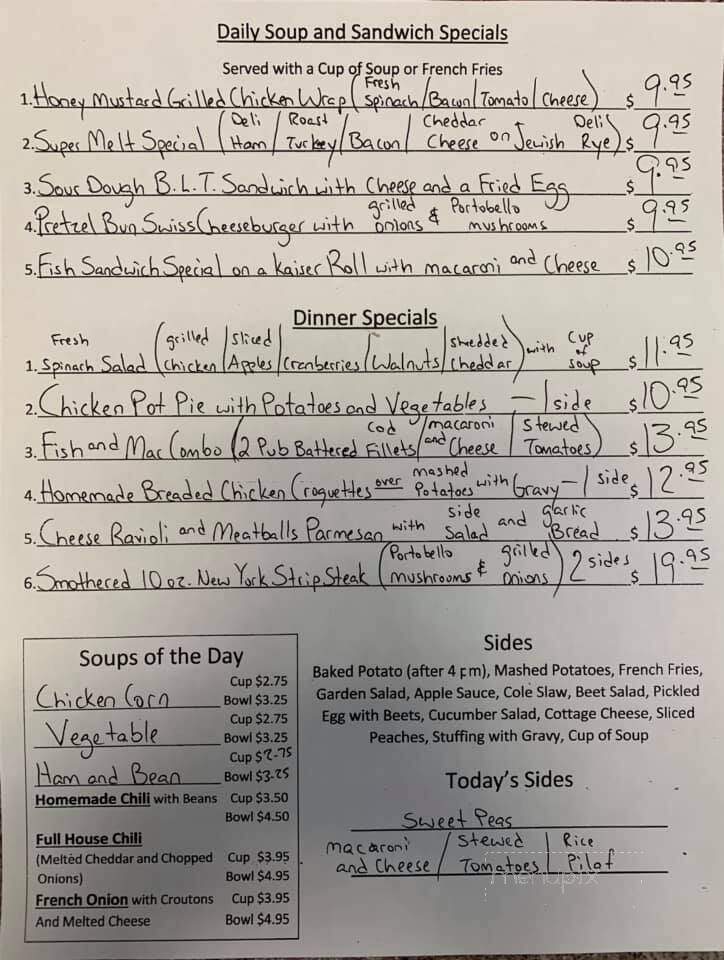 Daily Soup and Sandwich Specials
Served with a Cup of Soup or French Fries
1. Honey Mustard Grilled Chicken Wrap (Fresh Spinach/Bacon/Tomato/Cheese) $ 9.95
2. Super Melt Special (Deli Ham/Roast Turkey/Bacon/Cheddar Cheese on Jewish Deli Rye) $ 9.95
3. Sour Dough B.L.T. Sandwich with Cheese and a Fried Egg $ 9.95
4. Pretzel Bun Swiss Cheeseburger with grilled onions & Portobello mushrooms $ 9.95
5. Fish Sandwich Special on a Kaiser Roll with macaroni and Cheese $ 10.95
Dinner Specials
1. Fresh Spinach Salad (grilled Chicken/Sliced Apples/Cranberries/Walnuts/shredded Cheddar) with Cup of soup $ 11.95
2. Chicken Pot Pie with Potatoes and Vegetables — 1 side $ 10.95
3. Fish and Mac Combo (2 Pub Battered Cod Fillets/macaroni and Cheese/Stewed Tomatoes) $ 13.95
4. Homemade Breaded Chicken Croquettes over mashed Potatoes with Gravy — 1 side $ 12.95
5. Cheese Ravioli and Meatballs Parmesan with side Salad and garlic Bread $ 13.95
6. Smothered 10 oz. New York Strip Steak (Portobello mushrooms & grilled onions) 2 sides $ 19.95
Soups of the Day
Cup $2.75
Chicken Corn Bowl $3.25
Cup $2.75
Vegetable Bowl $3.25
Cup $2.75
Ham and Bean Bowl $3.25
Homemade Chili with Beans Cup $3.50
Bowl $4.50
Full House Chili
(Melted Cheddar and Chopped Cup $3.95
Onions) Bowl $4.95
French Onion with Croutons Cup $3.95
And Melted Cheese Bowl $4.95
Sides
Baked Potato (after 4 pm), Mashed Potatoes, French Fries,
Garden Salad, Apple Sauce, Cole Slaw, Beet Salad, Pickled
Egg with Beets, Cucumber Salad, Cottage Cheese, Sliced
Peaches, Stuffing with Gravy, Cup of Soup
Today's Sides
Sweet Peas
macaroni and Cheese/Stewed Tomatoes/Rice Pilaf
menupix